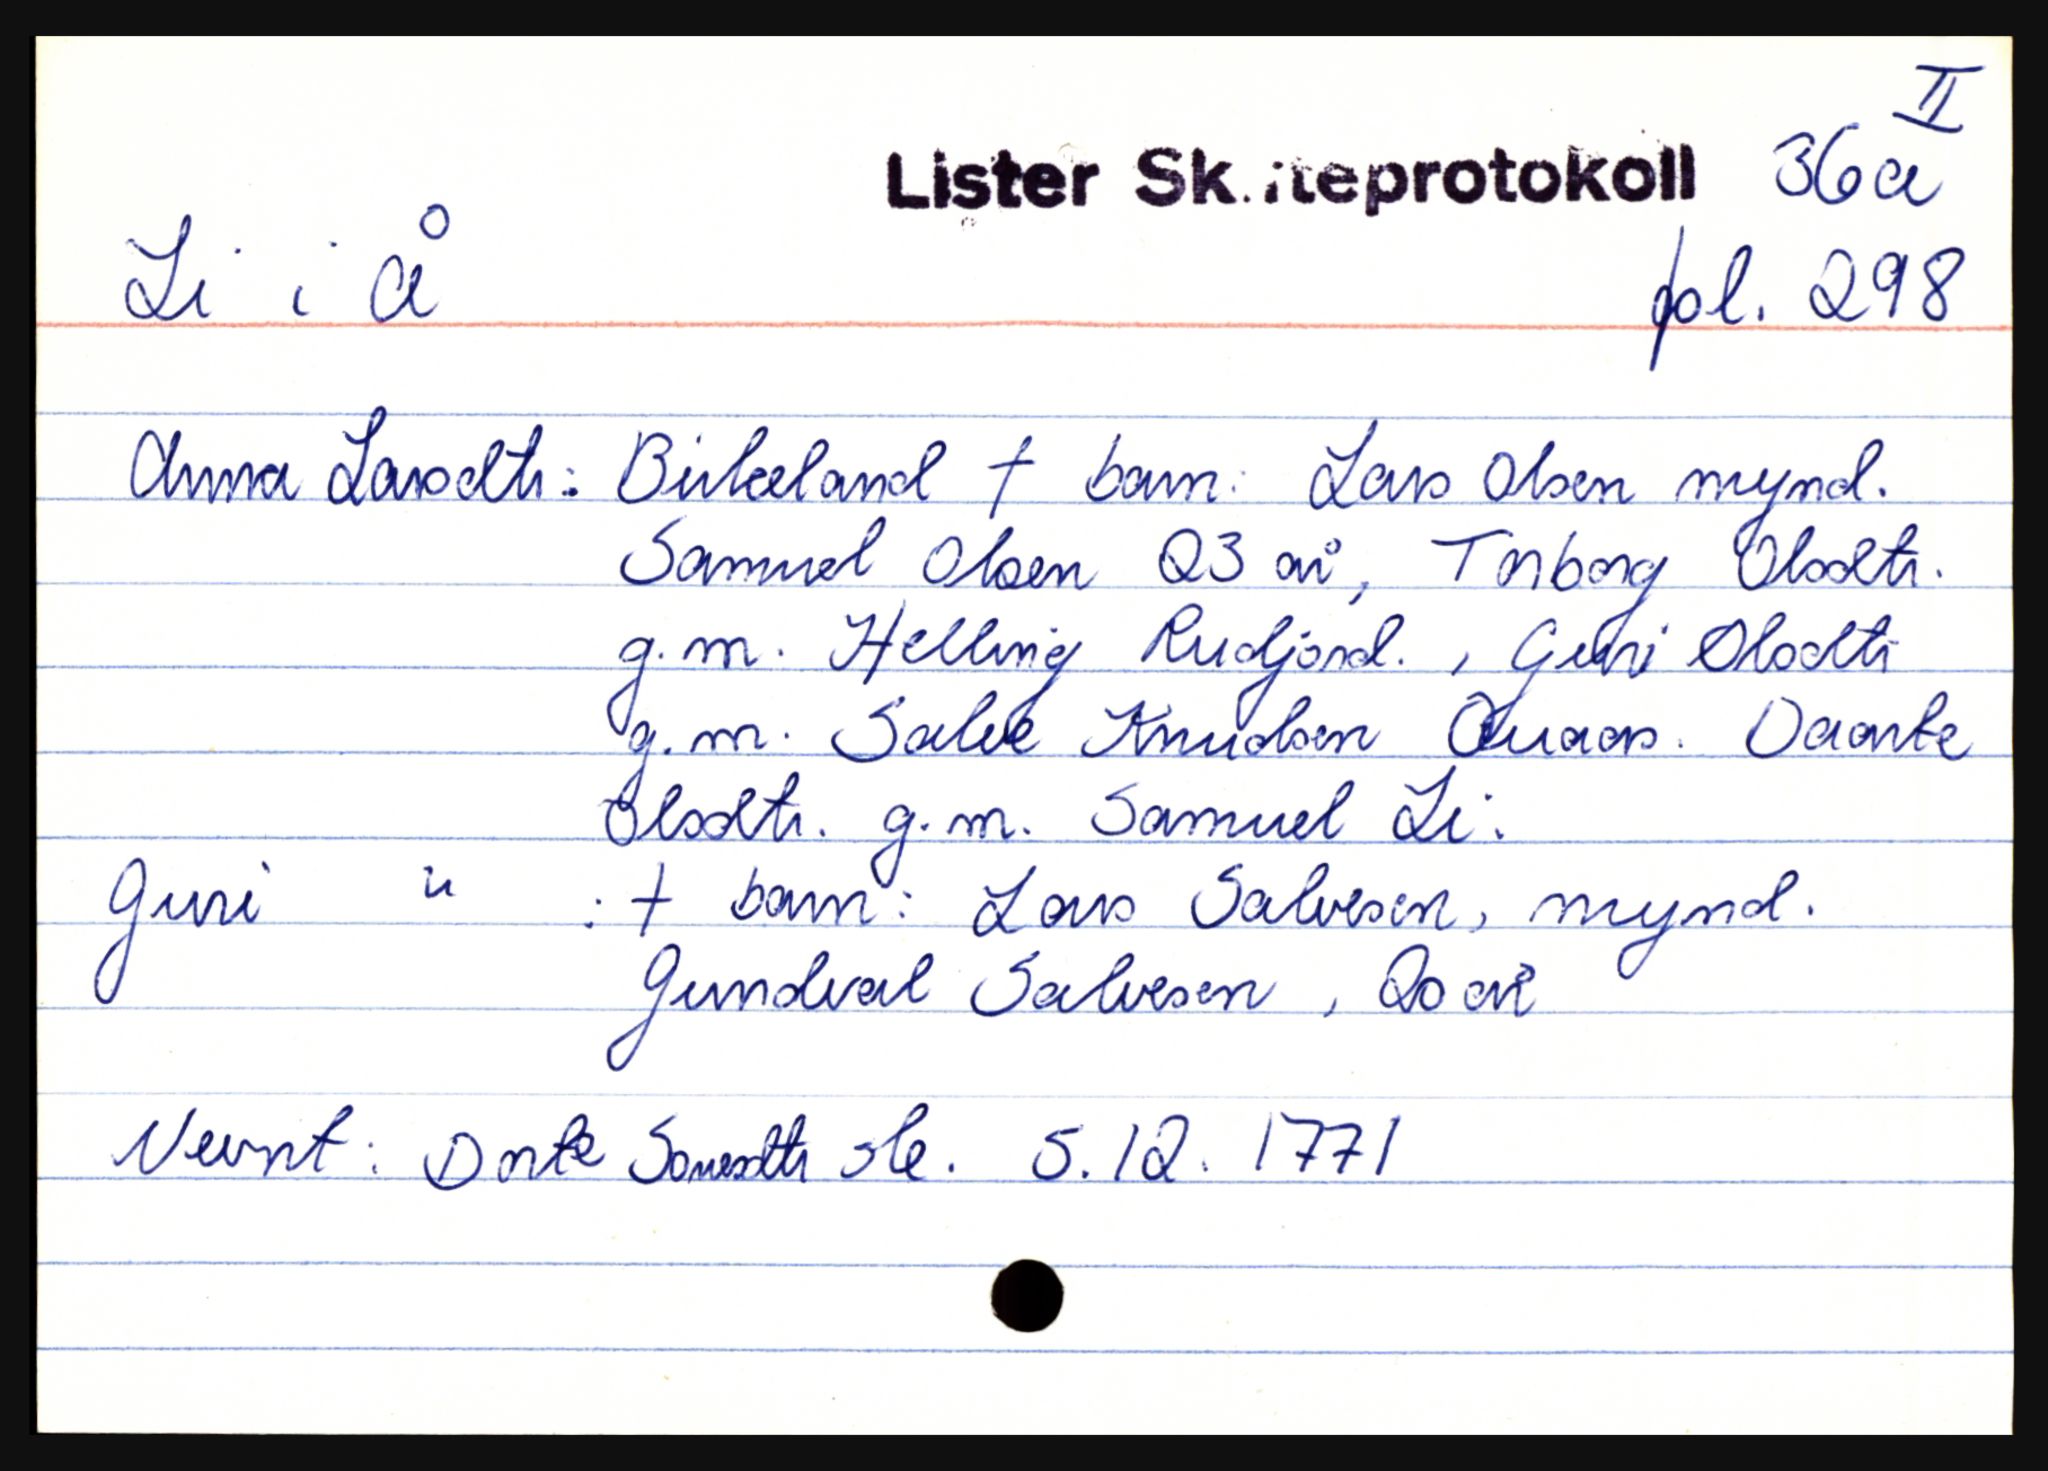 II
Lister Skifteprotokoll 36a
Li i Å fol. 298
Anna Larsdtr: Birkeland † barn: Lars Olsen mynd.
Samuel Olsen 23 år, Torborg Olsdtr.
g.m. Helling Rudjord., Guri Olsdtr
g.m. Salve Knudsen Quaas. Daarte
Olsdtr. g.m. Samuel Li.
Guri " : † barn: Lars Salvesen, mynd.
Gundval Salvesen, 20 år
Nevnt: Dorte sk. 5.12.1771